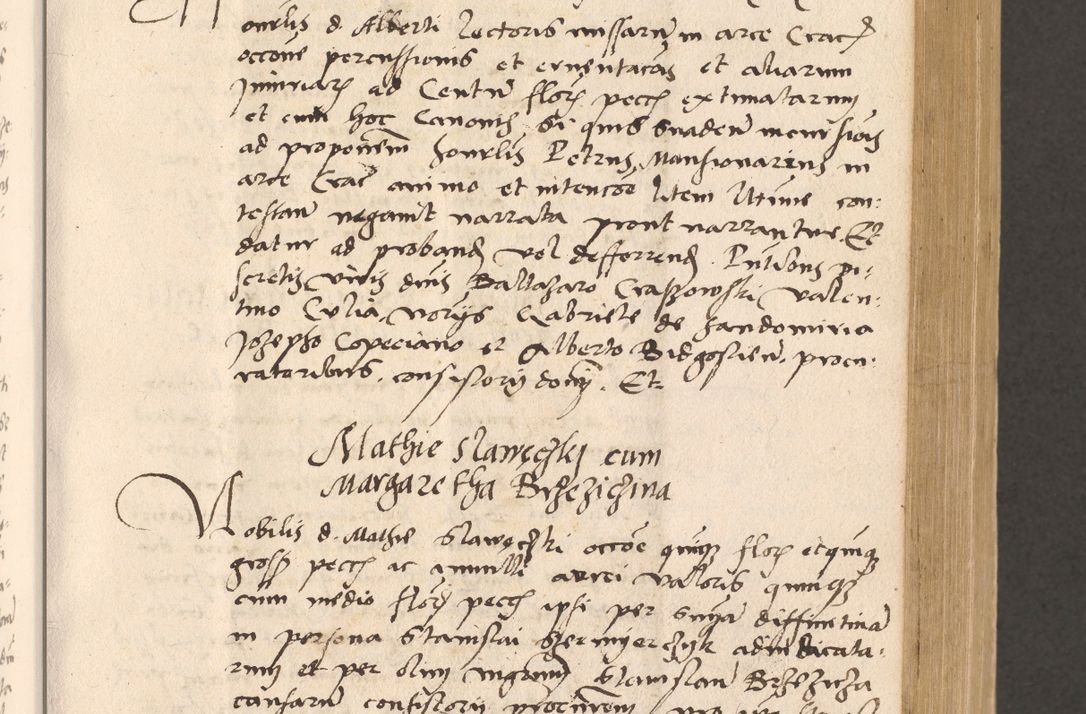 onrlis d Alberti Lectoris missarum in arce Crac
occone percussionis et cruentacois et aliarum
Iniuriarum ad Centum flor pecc extimatarum
et cum hoc Canonis Si quis suaden
ad proponem honrlis Petrus Mansionarius in
arce Crac animo et intencoe litem litime con-
testan negavit narrata prout narrantur Et
datur ad proband vel defferrend. Pntibus pi-
scretis viris dnis Baltazaro Craszowski valen-
tino Culia, Norijs Gabriele de Sandomiria
Jozepho Copeciano et Alberto Bidgostien procu-
ratoribus consistorij Et
Mathie Slawęcskj cum
Margaretha Brzezichna
Nobilis d. Mathie Slawęcski occoe quinque flor et quinque
gross pecc ac annulli aurei valoris quinque
cum medio flor pecc ipsi per snyam diffinitivam
in persona Stanislai adiudicata-
rum et per olim Stanislaum Brzezicha
causarum consistorij procurorem pro